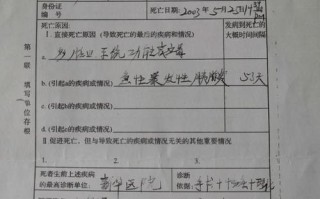 身份证
编号
死亡日期: 2003年5月25日
死亡原因
发病到死亡的
大概时间间隔
I.直接死亡原因(导致死亡的最后的疾病和情况)
a. 多脏器系统功能衰竭
b.(引起a的疾病或情况) 急性暴发性胰腺炎 5天
c.(引起b的疾病或情况)
II.促进死亡,但与导致死亡的疾病或情况无关的其他重要情况
死者生前上述疾病
的最高诊断单位: 新华医院
诊断
依据: 手术+
第一联 填写单位存根